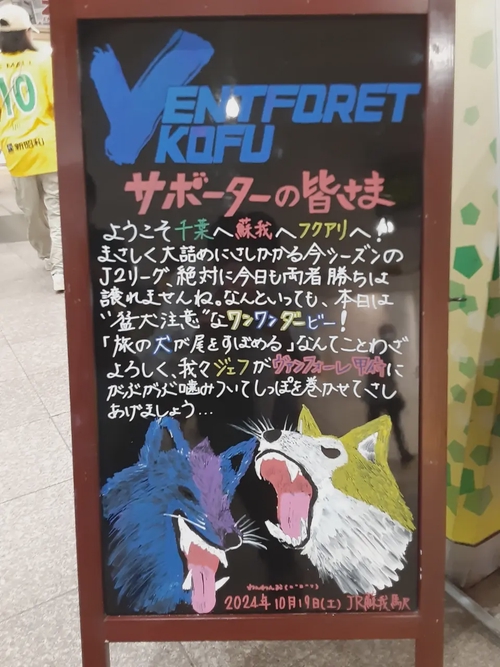 VENTFORET
KOFU
サポーターの皆さま
ようこそ千葉へ蘇我へフクアリへ!
まさしく大詰めにさしかかる今シーズンの
J2リーグ、絶対に今日も両者勝ちは
譲れませんね。なんといっても、本日は
"猛犬注意"なワンワンダービー!
「旅の犬が尾をすぼめる」なんてことわざ
よろしく、我々ジェフがヴァンフォーレ甲府に
がぶがぶ噛みついてしっぽを巻かせてさし
あげましょう…
2024年10月19日(土) JR蘇我駅
10